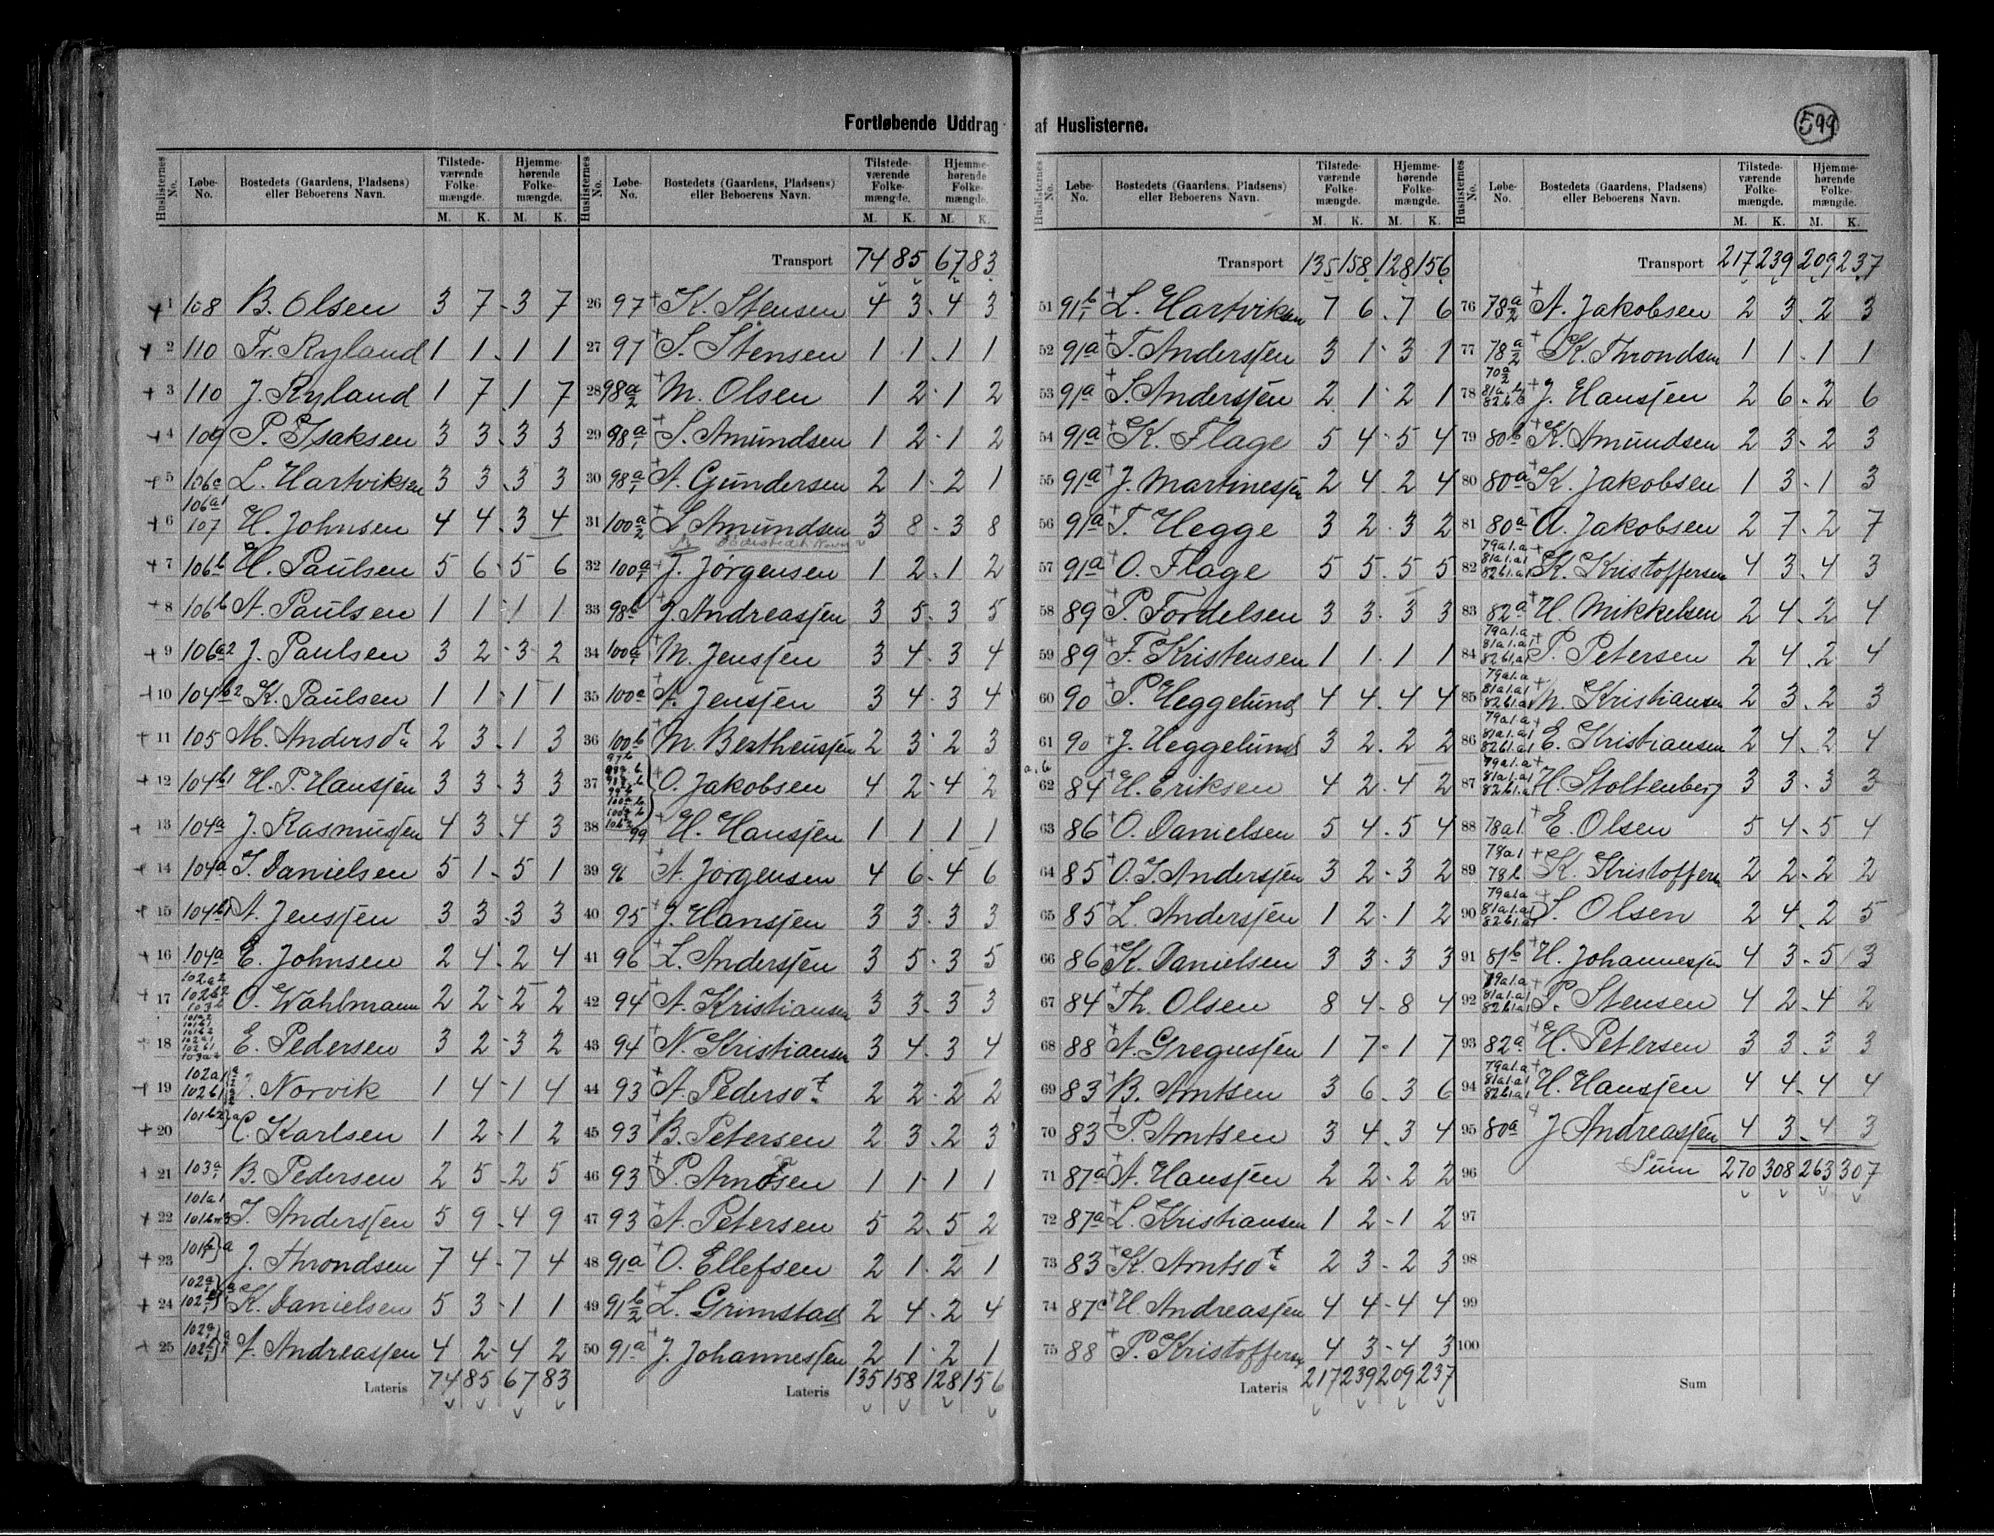 Fortløbende Uddrag af Huslisterne.
599
Huslisternes No. | Løbe-No. | Bostedets (Gaardens, Pladsens) eller Beboerens Navn. | Tilstedeværende Folkemængde. M. K. | Hjemmehørende Folkemængde. M. K.
1 108 B. Olsen 3 7 - 3 7
2 110 Fr. Ryland 1 1 - 1 1
3 110 J. Ryland 1 7 1 7
4 109 P. Isaksen 3 3 - 3 3
5 106a L. Hartviksen 3 3 - 3 3
6 106a1 107 H. Johnsen 4 4 - 3 4
7 106b H. Paulsen 5 6 - 5 6
8 106b A. Paulsen 1 1 1 1
9 106a2 J. Paulsen 3 2 - 3 2
10 104b2 K. Paulsen 1 1 - 1 1
11 105 M. Andersdt. 2 3 - 1 3
12 104b1 H. P. Hansjen 3 3 - 3 3
13 104a J. Rasmusjen 4 3 - 4 3
14 104a I. Danielsen 5 1 - 5 1
15 104b1 A. Jensjen 3 3 - 3 3
16 104a E. Johnsen 2 4 - 2 4
17 102a2 102b2 103b O. Wahlmann 2 2 - 2 2
18 E. Pedersen 3 2 - 3 2
19 102a1 102b1 Norvik 1 4 - 1 4
20 101b2 C. Karlsen 1 2 - 1 2
21 103a B. Pedersen 2 5 - 2 5
22 101a1 I. Andersjen 5 9 - 4 9
23 J. Throndsen 7 4 - 7 4
24 K. Danielsen 5 3 - 1 1
25 A. Andreasjen 4 2 - 4 2
Lateris 74 85 67 83
Transport 74 85 67 83
26 97 K. Stensen 4 3 - 4 3
27 97 S. Stensen 1 1 - 1 1
28 98a/2 M. Olsen 1 2 - 1 2
29 98a/1 S. Amundsen 1 2 - 1 2
30 98a/1 A. Gundersen 2 1 - 2 1
31 100a/2 L. Amundsen 3 8 - 3 8
32 100a/1 J. Jørgensen 1 2 - 1 2
33 98b J. Andreasjen 3 5 - 3 5
34 100a/1 M. Jensjen 3 4 - 3 4
35 100a A. Jensjen 3 4 - 3 4
36 100b M. Bertheusjen 2 3 - 2 3
37 O. Jakobsen 4 2 - 4 2
38 99 H. Hansjen 1 1 1 1
39 96 A. Jørgensen 4 6 - 4 6
40 95 J. Hansjen 3 3 - 3 3
41 96 L. Andersjen 3 5 - 3 5
42 94 A. Kristiansen 3 3 - 3 3
43 94 N. Kristiansen 3 4 - 3 4
44 93 A. Pedersdt. 2 2 - 2 2
45 93 B. Petersen 2 3 - 2 3
46 93 P. Amtsen 1 1 - 1 1
47 93 A. Petersen 5 2 - 5 2
48 91a O. Ellefsen 2 1 - 2 1
49 91b/2 L. Grimstad 2 4 - 2 4
50 91a J. Johannesjen 2 1 - 2 1
Lateris 135 158 128 156
Transport 135 158 128 156
51 91b/1 L. Hartviksen 7 6 - 7 6
52 91a T. Andersjen 3 1 - 3 1
53 91a S. Andersjen 2 1 - 2 1
54 91a K. Flage 5 4 - 5 4
55 91a J. Martinesjen 2 4 - 2 4
56 91a T. Hegge 3 2 - 3 2
57 91a O. Flage 5 5 - 5 5
58 89 P. Fordelsen 3 3 - 3 3
59 89 F. Kristensen 1 1 - 1 1
60 90 P. Heggelund 4 4 - 4 4
61 90 J. Heggelund 3 2 - 2 2
62 a.b 84 H. Eriksen 4 2 - 4 2
63 86 O. Danielsen 5 4 - 5 4
64 85 O. J. Andersjen 3 2 - 3 2
65 85 L. Andersjen 1 2 - 1 2
66 86 K. Danielsen 3 3 - 3 3
67 84 Th. Olsen 8 4 - 8 4
68 88 A. Gregusjen 1 7 - 1 7
69 83 B. Amtsen 3 6 - 3 6
70 83 P. Amtsen 3 4 - 3 4
71 87a A. Hansjen 2 2 - 2 2
72 87a L. Kristiansen 1 2 - 1 2
73 83 K. Amtsdt. 2 3 - 2 3
74 87c H. Andreasjen 4 4 - 4 4
75 88 P. Kristoffersen 4 3 - 4 3
Lateris 217 239 209 237
Transport 217 239 209 237
76 78a/2 A. Jakobsen 2 3 - 2 3
77 78a/2 K. Throndsen 1 1 - 1 1
78 J. Hansjen 2 6 - 2 6
79 80b K. Amundsen 2 3 - 2 3
80 80a K. Jakobsen 1 3 - 1 3
81 80a A. Jakobsen 2 7 - 2 7
82 79a1.a 81a1.a1 82b1.a1 K. Kristoffersen 4 3 - 4 3
83 82a H. Mikkelsen 2 4 - 2 4
84 79a1.a 81a1.a1 82b1.a1 P. Petersen 2 4 - 2 4
85 79a1.a 81a1.a1 82b1.a1 M. Kristiansen 2 3 - 2 3
86 79a1.a 81a1.a1 82b1.a1 E. Kristiansen 2 4 - 2 4
87 79a1.a 81a1.a1 82b1.a H. Stoltenberg 3 3 - 3 3
88 78a1 E. Olsen 5 4 - 5 4
89 78a1 78b K. Kristoffersen 2 2 - 2 2
90 79a1a 81a1.a1 82b1.a1 S. Olsen 2 4 - 2 5
91 81b H. Johannesjen 4 3 - 5 3
92 79a1.a 81a1.a1 82b1.a1 P. Stensen 4 2 - 4 2
93 82a H. Petersen 3 3 - 3 3
94 79a1.a 81a1.a1 82b1.a1 H. Hansjen 4 4 - 4 4
95 80a J. Andreasjen 4 3 - 4 3
96 Sum 270 308 263 307
97
98
99
100
Sum